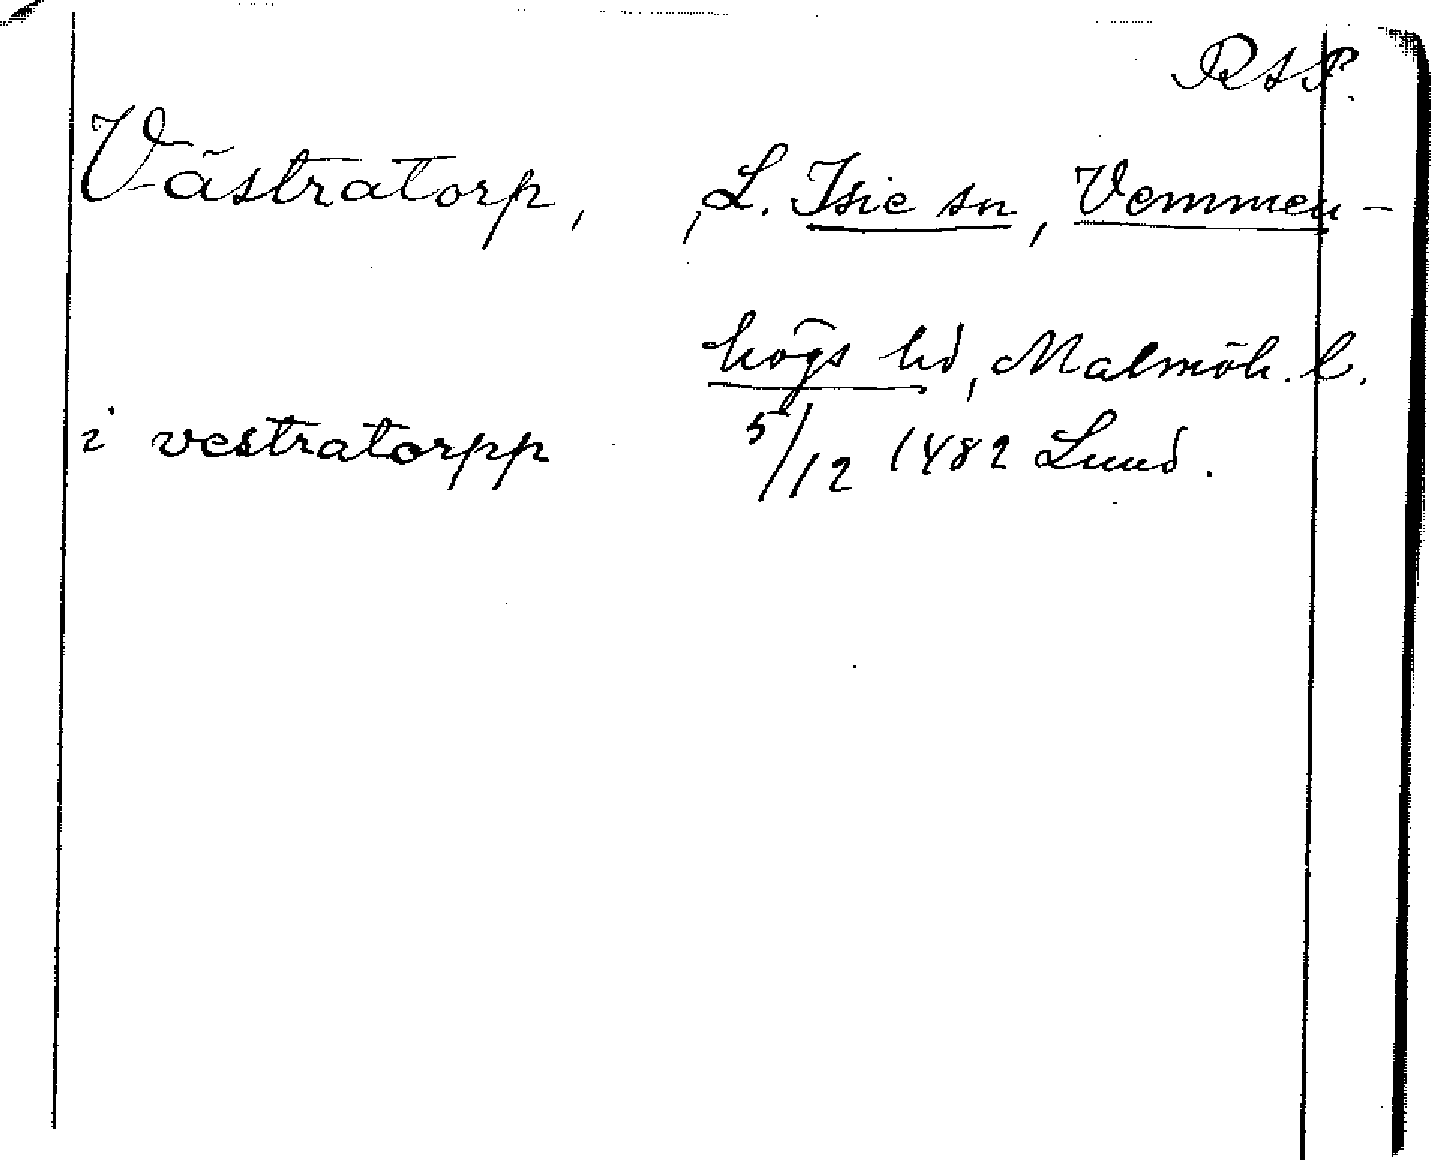 RAP.
Västratorp, L. Isie sn, Vemmen-
högs hd, Malmöh. l.
i vestratorpp 5/12 1482 Lund.